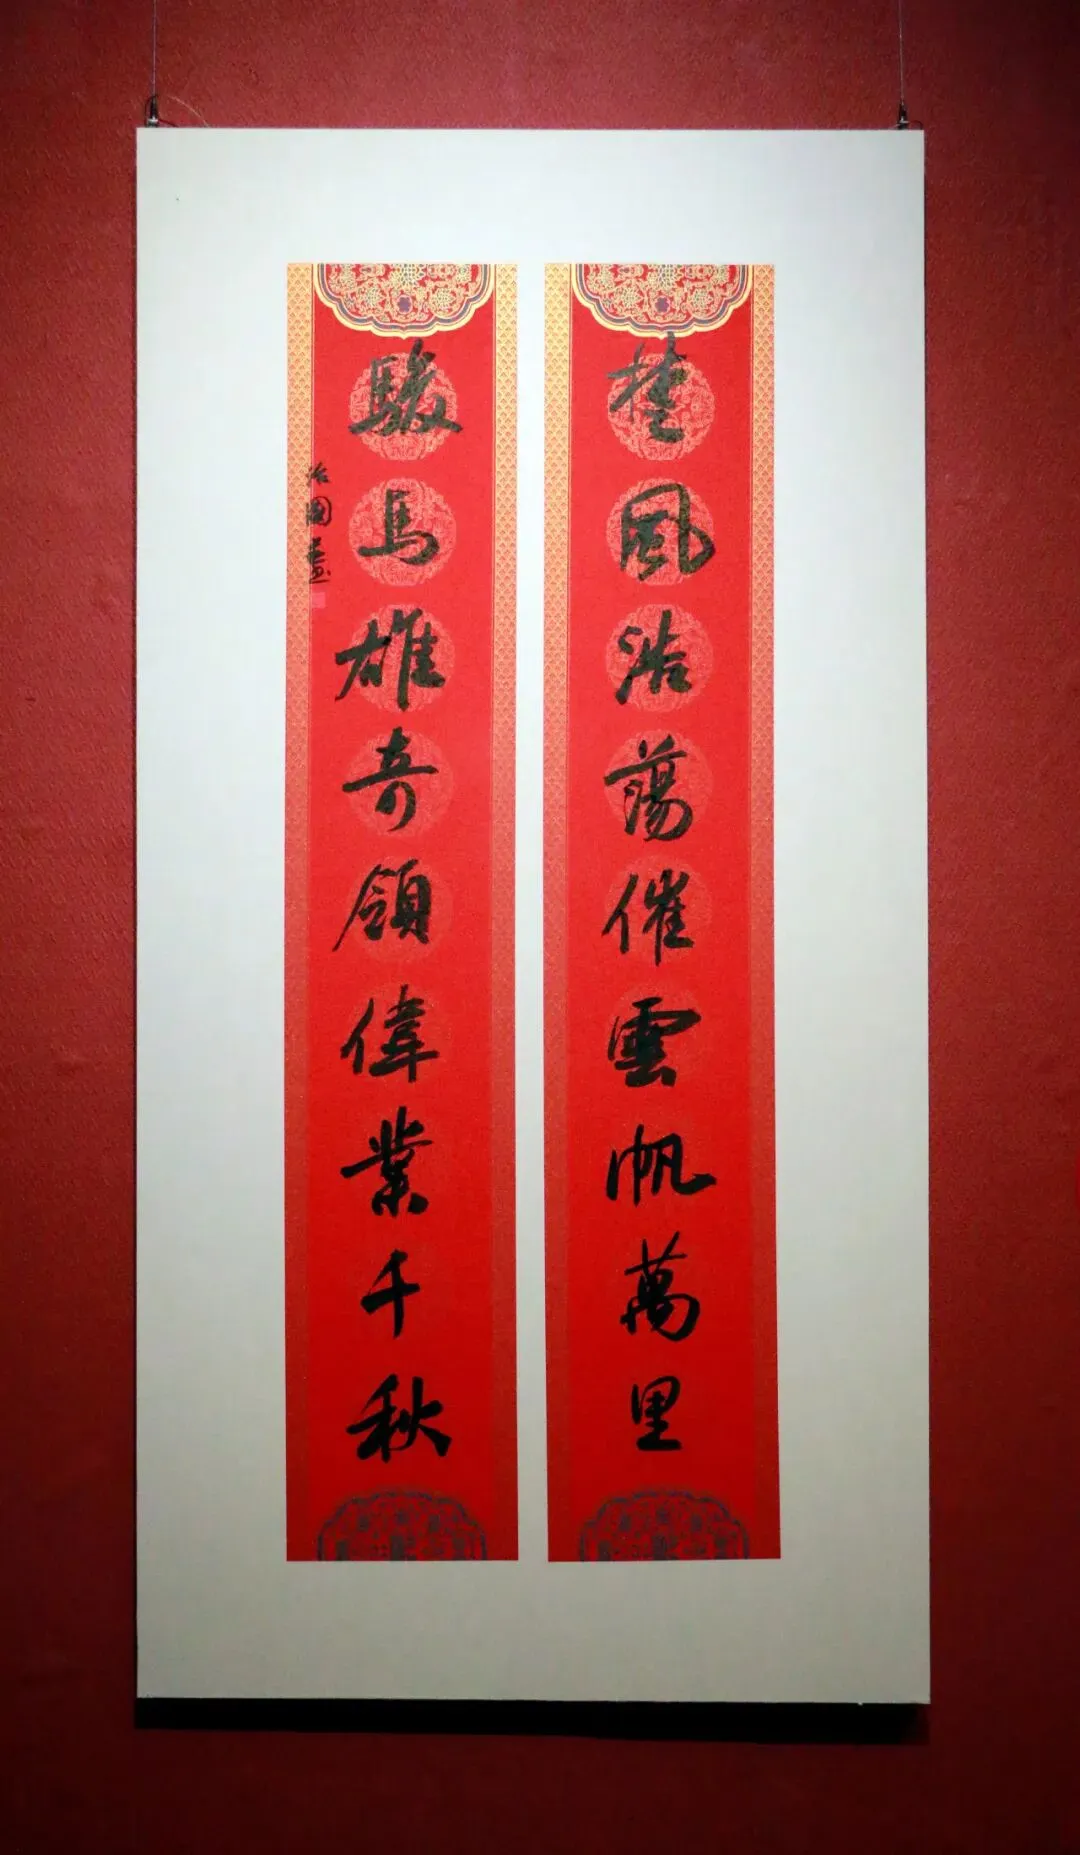 楚風浩蕩催雲帆萬里
駿馬雄奇領偉業千秋
治國書